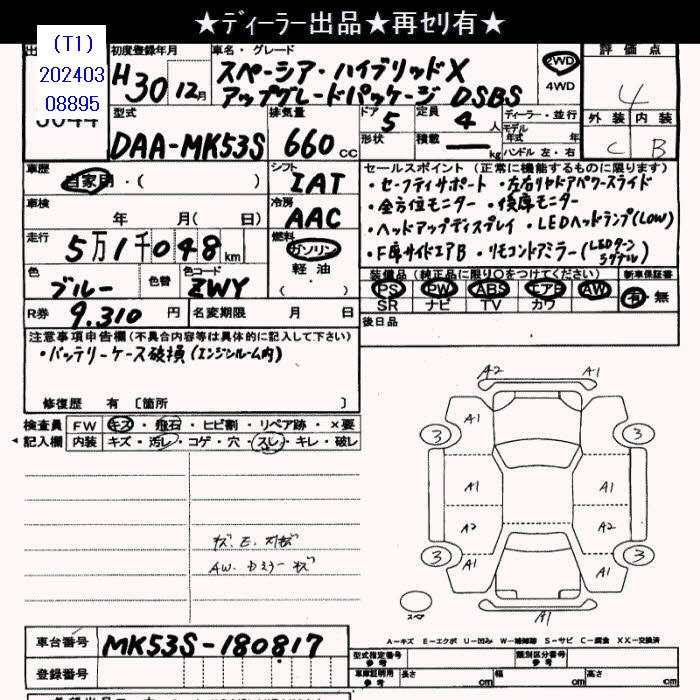 ★ディーラー出品★再セリ有★
(T1)
202403
08895
出
5044
初度登録年月
H30 12月
車名・グレード
スペーシア・ハイブリッドX
アップグレードパッケージ DSBS
2WD
4WD
評価点
4
外装 内装
C B
型式
DAA-MK53S
排気量
660 CC
ドア
5
形状
定員
4 人
積載
kg
ディーラー・並行
モデル
年式 年
ハンドル 左・右
車歴
自家用・( )
シフト
IAT
車検
年 月( 日)
冷房
AAC
走行
5万1千048km
燃料
ガソリン
軽油
( ・ )
色
ブルー
色替
色コード
ZWY
R券
9.310 円
名変期限 月 日
セールスポイント(正常に機能するものに限ります)
・セーフティサポート ・左右リヤドアパワースライド
・全方位モニター ・後席モニター
・ヘッドアップディスプレイ ・LEDヘッドランプ(LOW)
・F席サイドエアB ・リモコンドアミラー(LEDターンラグナル)
装備品(純正品に限り○をつけてください)
新車保証書
PS PW ABS エアB AW
SR ナビ TV カワ
有 無
後日品
注意事項申告欄(不具合内容等は具体的に記入して下さい)
・バッテリーケース破損(エンジンルーム内)
修復歴 有〔箇所 〕
検査員 FW キズ・飛石・ヒビ割・リペア跡・×要
記入欄 内装 キズ・汚レ・コゲ・穴・スレ・キレ・破レ
AW. ドミラー キズ
A2 A1
A1 A1
3 3
A1 A1
A2 A2
3 3
A1
A1
スペア
A-キズ E-エクボ U-凹み W-補修跡 S-サビ C-腐食 XX-交換済
車台番号 MK53S-180817
登録番号
型式指定番号
参考
類別区分番号
参考
車庫証明用
参考
長さ cm 幅 cm 高さ cm